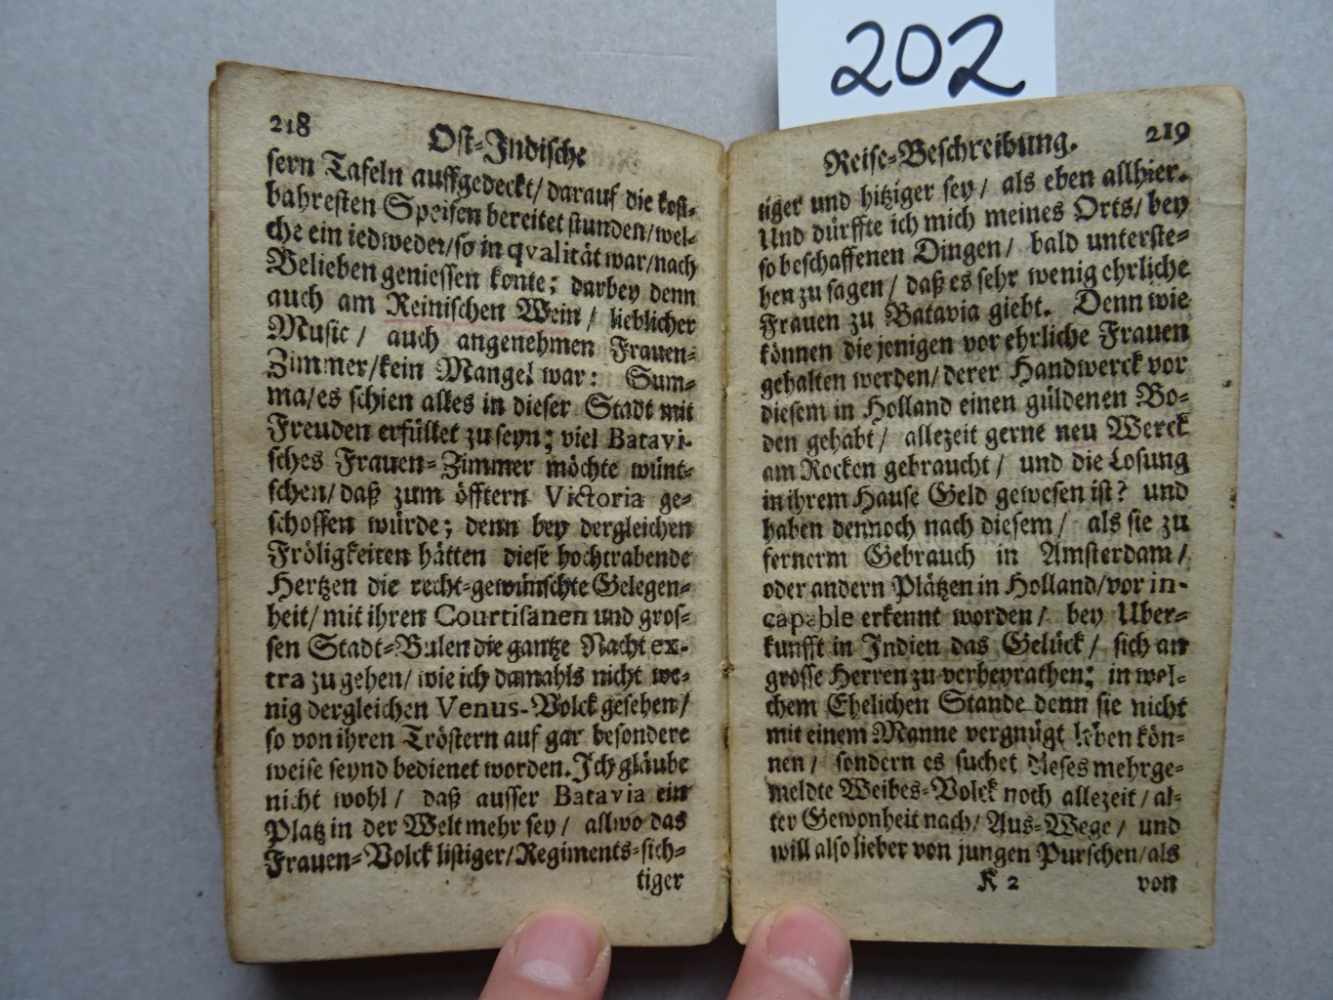 202
218
Ost-Indische
sern Tafeln auffgedeckt/ darauf die kost-
bahresten Speisen bereitet stunden/ wel-
che ein iedweder/ so in qvalität war/ nach
Belieben geniessen konte; darbey denn
auch am Reinischen Wein/ lieblicher
Music/ auch angenehmen Frauen-
Zimmer/ kein Mangel war: Sum-
ma/ es schien alles in dieser Stadt mit
Freuden erfüllet zu seyn; viel Batavi-
sches Frauen-Zimmer möchte wünt-
schen/ daß zum öfftern Victoria ge-
schossen würde; denn bey dergleichen
Fröligkeiten hätten diese hochtrabende
Hertzen die recht-gewünschte Gelegen-
heit/ mit ihren Courtisanen und gros-
sen Stadt-Bulen die gantze Nacht ex-
tra zu gehen/ wie ich damahls nicht we-
nig dergleichen Venus-Volck gesehen/
so von ihren Tröstern auf gar besondere
weise seynd bedienet worden. Ich gläube
nicht wohl/ daß ausser Batavia ein
Platz in der Welt mehr sey/ allwo das
Frauen-Volck listiger/ Regiments-sich-
tiger
Reise-Beschreibung.
219
tiger und hitziger sey/ als eben allhier.
Und dürffte ich mich meines Orts/ bey
so beschaffenen Dingen/ bald unterste-
hen zu sagen/ daß es sehr wenig ehrliche
Frauen zu Batavia giebt. Denn wie
können diejenigen vor ehrliche Frauen
gehalten werden/ derer Handwerck vor
diesem in Holland einen güldenen Bo-
den gehabt/ allezeit gerne neu Werck
am Rocken gebraucht/ und die Losung
in ihrem Hause Geld gewesen ist? und
haben dennoch nach diesem/ als sie zu
fernerm Gebrauch in Amsterdam/
oder andern Plätzen in Holland/ vor in-
capable erkennt worden/ bey Uber-
kunfft in Indien das Gelück/ sich an
grosse Herren zu verheyrathen; in wel-
chem Ehelichen Stande denn sie nicht
mit einem Manne vergnügt leben kön-
nen/ sondern es suchet dieses mehrge-
meldte Weibes-Volck noch allezeit/ al-
ter Gewonheit nach/ Aus-Wege/ und
will also lieber von jungen Purschen/ als
K 2
von